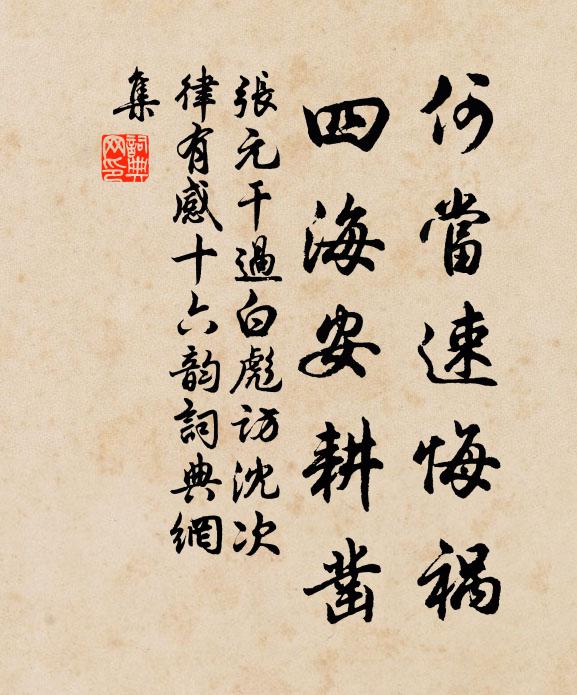 何當速悔禍
四海安耕鑿
張元干過白彪訪沈次
律有感十六韵詞典網
集
詞典
网印